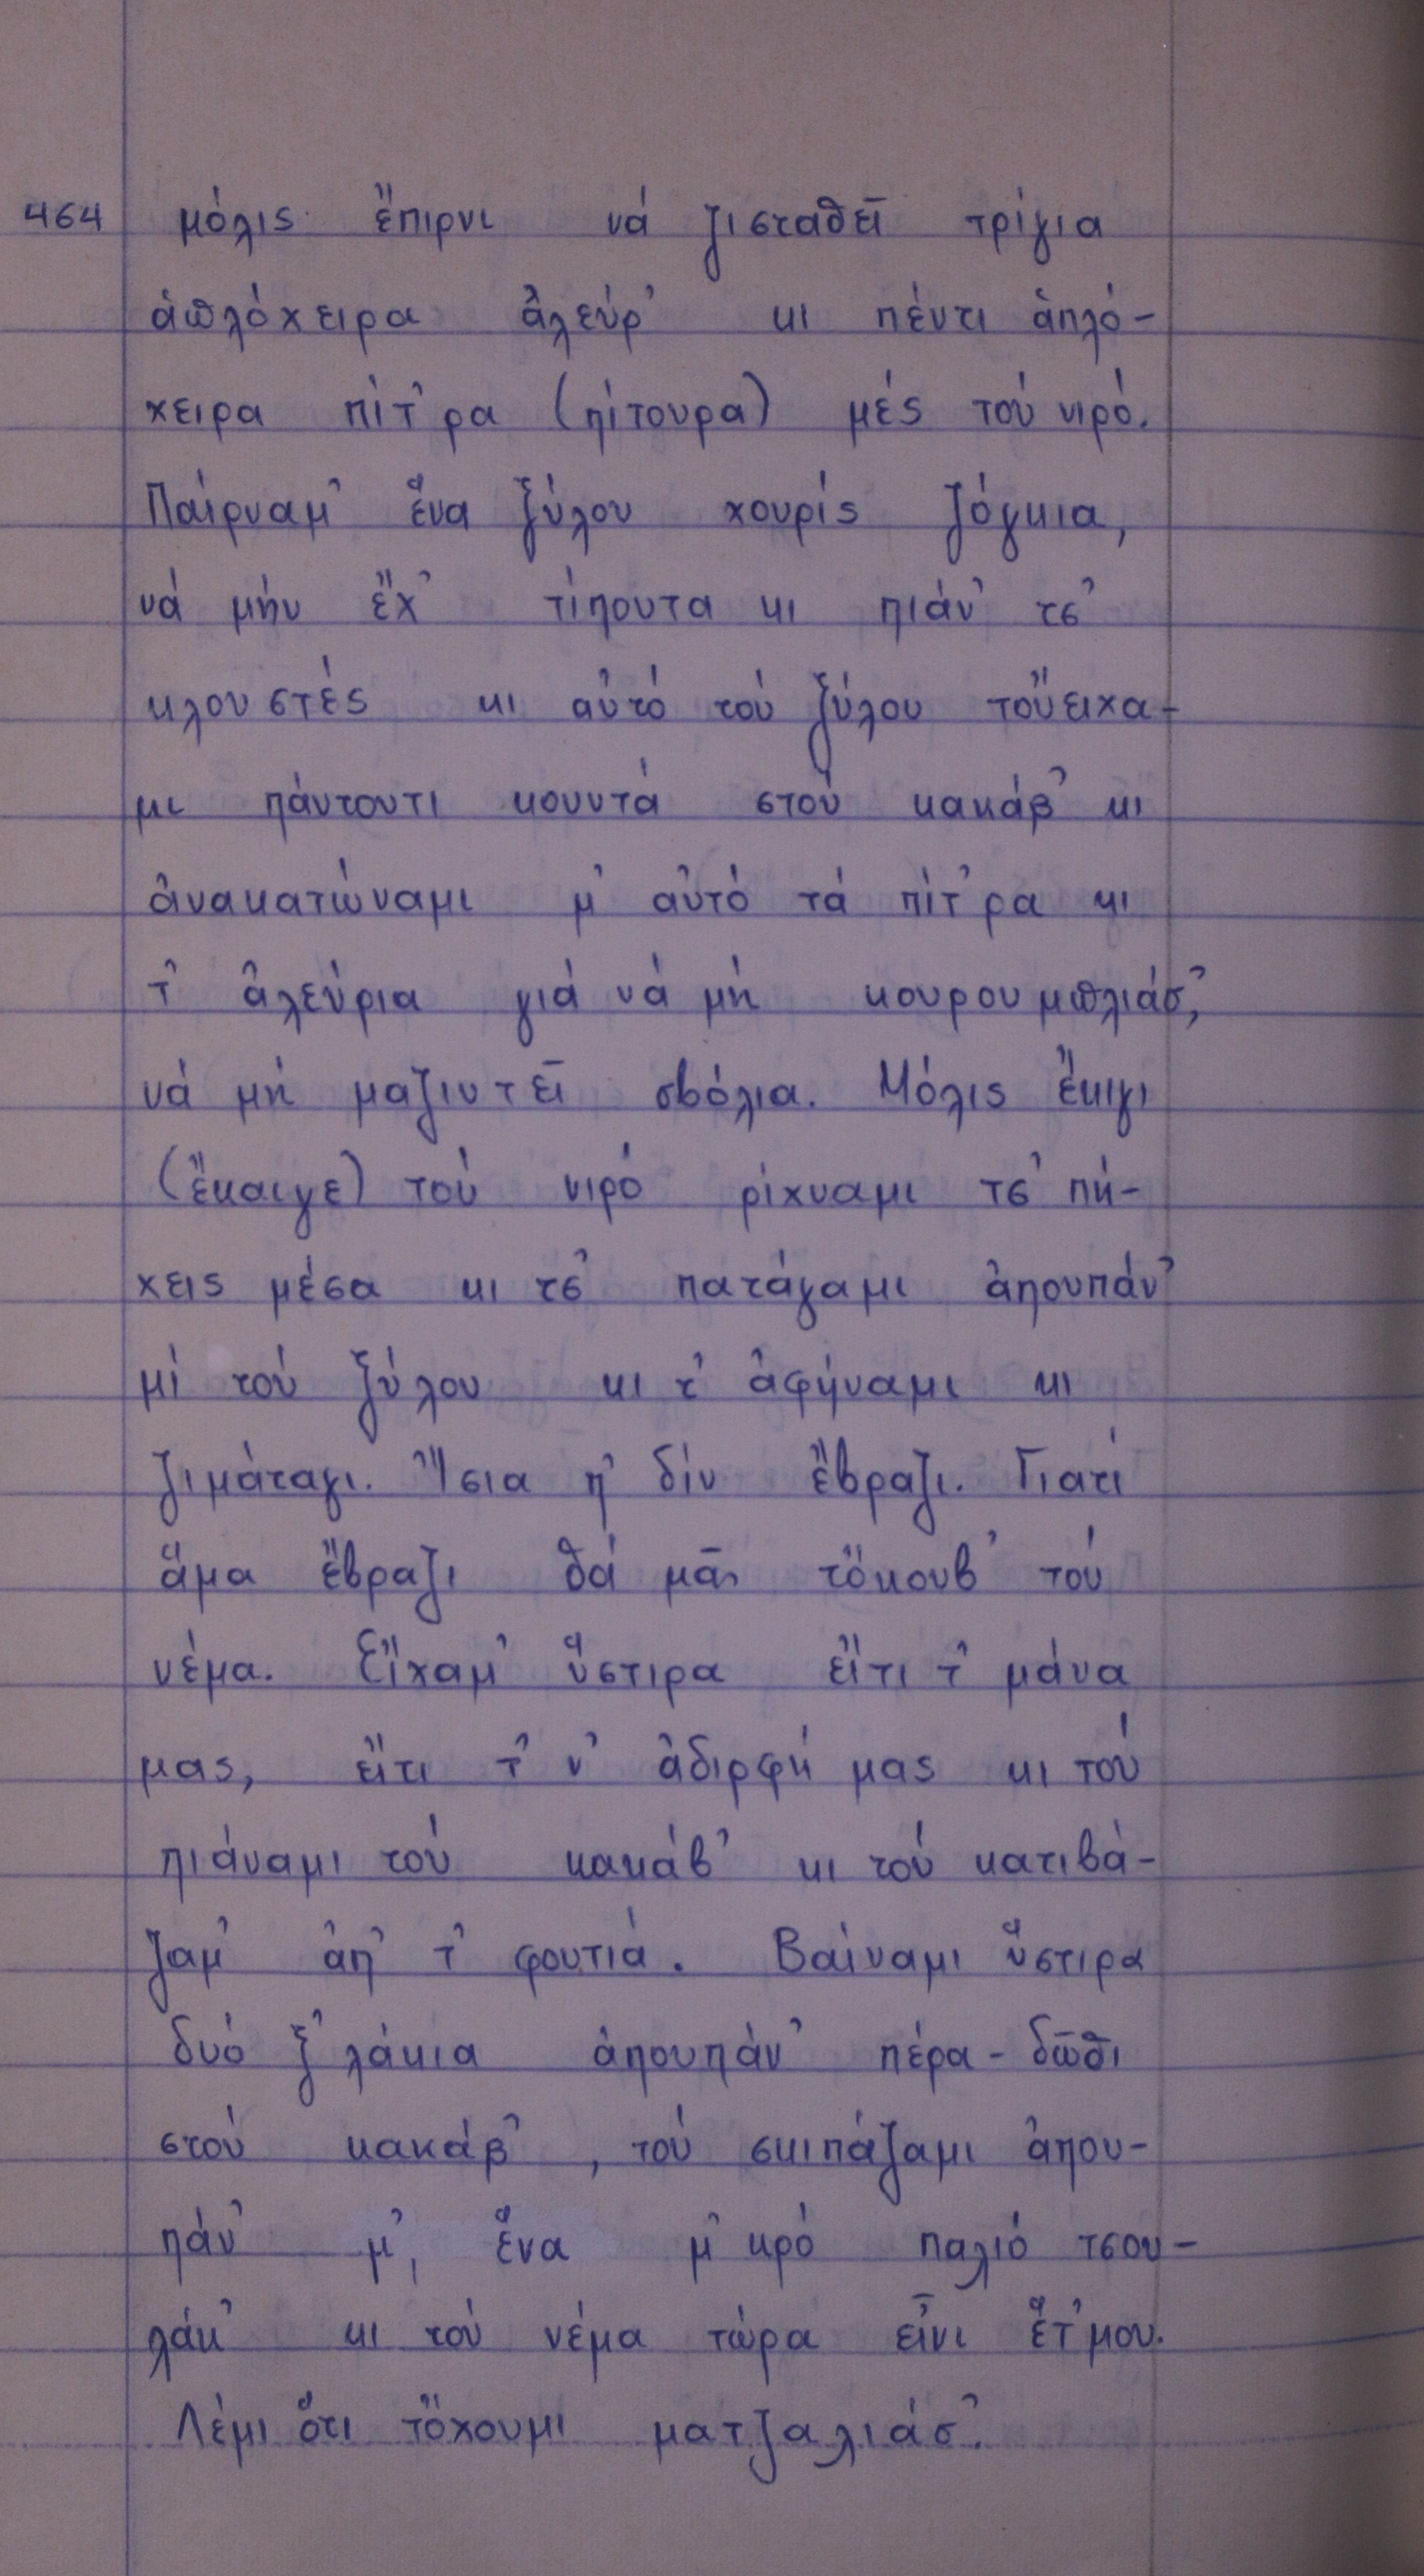 464 μόλις ἔπιρνι νά ζισταθεῖ τρίγια
ἀπλόχειρα ἀλεύρ' κι πέντι ἀπλό-
χειρα πίτ'ρα (πίτουρα) μές τού νιρό.
Παίρναμ' ἕνα ξύλου χουρίς ζόγκια,
νά μήν ἔχ' τίπουτα κι πιάν' τσ'
κλουστές κι αὐτό τού ξύλου τοὔειχα-
μι πάντουτι κουντά στού κακάβ' κι
ἀνακατώναμι μ' αὐτό τά πίτ'ρα κι
τ' ἀλεύρια γιά νά μή κουρουμπλιάσ',
νά μή μαζιυτεῖ σβόλια. Μόλις ἔκιγι
(ἔκαιγε) τού νιρό ρίχναμι τσ' πή-
χεις μέσα κι τσ' πατάγαμι ἀπουπάν'
μί τού ξύλου κι τ' ἀφήναμι κι
ζιμάταγι. Ἴσια π' δίν ἔβραζι. Γιατί
ἅμα ἔβραζι θά μᾶς τὄκουβ' τού
νέμα. Εἴχαμ' ὕστιρα εἴτι τ' μάνα
μας, εἴτι τ' ν' ἀδιρφή μας κι τού
πιάναμι τού κακάβ' κι τού κατιβά-
ζαμ' ἀπ' τ' φουτιά. Βαίναμι ὕστιρα
δυό ξ'λάκια ἀπουπάν' πέρα-δῶθι
στού κακάβ', τού σκιπάζαμι ἀπου-
πάν' μ', ἕνα μ'κρό παλιό τσου-
λάκ' κι τού νέμα τώρα εἶνι ἕτ'μου.
Λέμι ὅτι τὄχουμι ματζαλιάσ'.